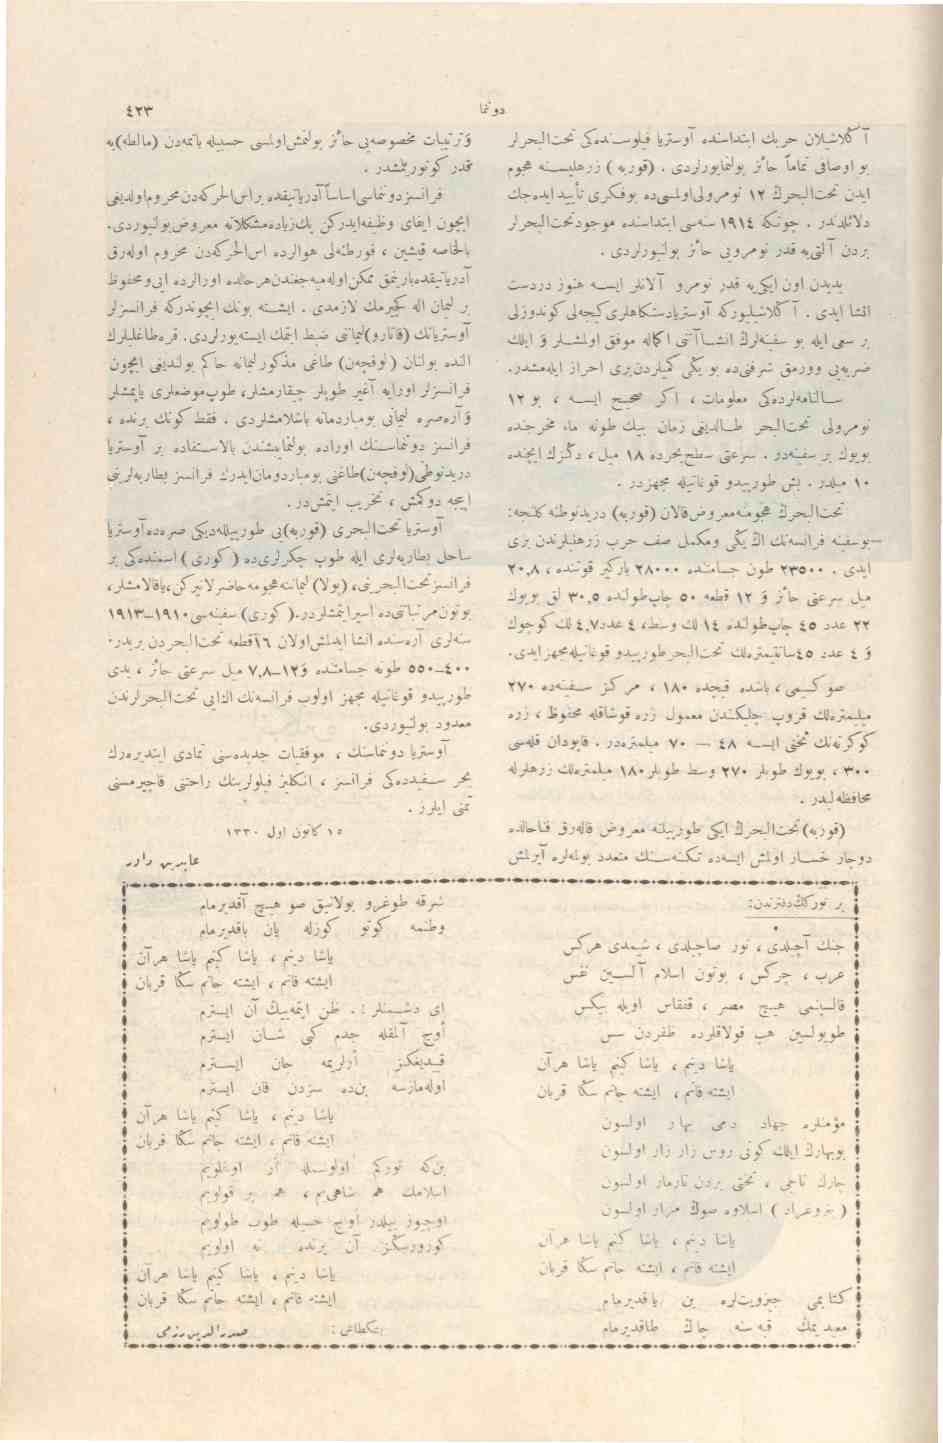 دونما
٤٢٣
آكلاشیلان حربك ابتداسنده آوستریا فیلوسنده‌كی تحت‌البحرلر
بو اوصافی تماماً حائز بولنمابورلردی . (قوربه) زرهلیسنه هجوم
ایدن تحت‌البحرك ١٢ نومرولی اولمسی‌ده بوفكری تأیید ایده‌جك
دلائلدندر . چونكه ١٩١٤ سنه‌سی ابتداسنده موجود تحت‌البحرلر
بردن آلتی‌یه قدر نومرویی حائز بولنیورلردی .
یدیدن اون ایكی‌یه قدر نومرو آلانلر ایسه هنوز دردست
انشا ایدی . آكلاشیلیوركه آوستریا دستكاهلری كیجه‌لی كوندوزلی
بر سعی ایله بو سفینه‌لرك انشاآتنی اكماله موفق اولمشلر و ایلك
ضربه‌یی وورمق شرفنی‌ده بو یكی كمیلردن بری احراز ایله‌مشدر.
سالنامه‌لرده‌كی معلومات ، اكر صحیح ایسه ، بو ١٢
نومرولی تحت‌البحر طالدیغی زمان بیك طونه ماء مخرجنده
بویوك بر سفینه‌در . سرعتی سطح بحرده ١٨ میل ، دكزك ایچنده
١٠ میلدر . بش طورپیدو قوغانیله مجهزدر .
تحت‌البحرك هجومنه معروض قالان (قوربه) دریدنوطنه كلنجه :
بوسفینه فرانسه‌نك اك یكی ومكمل صف حرب زرهلیلرندن بری
ایدی . ٢٣٥٠٠ طون جسامتنده ٢٨٠٠٠ باركیر قوتنده ، ٢٠٫٨
میل سرعتی حائز و ١٢ قطعه ٥٠ چاپ طولنده ٣٠٫٥ لق بویوك
٢٢ عدد ٤٥ چاپ طولنده ١٤ لك وسط ، ٤ عدد ٤٫٧ لك كوچوك
و ٤ عدد ٤٥ سانتیمتره‌لك تحت‌البحر طورپیدو قوغانیله مجهز ایدی.
صو كسیمی ، باشده قیچده ١٨٠ ، مركز سفینه‌ده ٢٧٠
میلیمتره‌لك قروپ چلیكندن معمول زره قوشاقله محفوظ ، زره
كوكرته‌نك ثخنی ایسه ٤٨ — ٧٠ میلیمتره‌در . قاپودان قله‌سی
٣٠٠ ، بویوك طوپلر ٢٧٠ وسط طوپلر ١٨٠ میلیمتره‌لك زرهلرله
محافظه‌لیدر .
(قوربه) تحت‌البحرك ایكی طورپیلنه معروض قاله‌رق فناحالده
دوچار خسار اولمش ایسه‌ده تكنه‌سنك متعدد بولمه‌لره آیرلمش
و ترتیبات مخصوصه‌یی حائز بولنمش اولمسی حسبیله باتمه‌دن (مالطه)یه
قدر كوتورلمشدر .
فرانسز دونماسی اساساً آدریاتیقده بر اس‌الحركه‌دن محروم اولدیغی
ایچون ایفای وظیفه ایدركن پك زیاده مشكلاته معروض بولنیوردی.
بالخاصه قیشین ، فورطنه‌لی هوالرده اس‌الحركه‌دن محروم اوله‌رق
آدریاتیقده بارینمق ممكن اوله‌میه‌جغندن هرحالده اورالرده ایی ومحفوظ
بر لیمان اله كچیرمك لازمدی . ایشته بونك ایچوندركه فرانسزلر
آوستریانك (قاتارو) لیماننی ضبط ایتمك ایسته‌یورلردی. قره‌طاغلیلرك
النده بولنان (لوفچه‌ن) طاغی مذكور لیمانه حاكم بولندیغی ایچون
فرانسزلر اورایه آغیر طوپلر چیقارمشلر، طوپ موضعلری یاپمشلر
و آره‌صره لیمانی بومباردمانه باشلامشلردی . فقط كونك برنده ،
فرانسز دونماسنك اوراده بولنمایشندن بالاستفاده بر آوستریا
دریدنوطی (لوفچه‌ن) طاغنی بومباردومان ایدرك فرانسز بطاریه‌لرینی
اییجه دوكمش ، تخریب ایتمش‌در.
آوستریا تحت‌البحری (قوربه)یی طورپیللهدیكی صره‌ده آوستریا
ساحل بطاریه‌لری ایله طوپ چكرلری‌ده (كوری) اسمنده‌كی بر
فرانسز تحت‌البحرینی، (پولا) لیماننه هجومه حاضرلانیركن، یاقالامشلر،
بوتون مرتباتنی‌ده اسیر ایتمشلردر. (كوری) سفینه‌سی ١٩١٠–١٩١٣
سنه‌لری آره‌سنده انشا ایدلمش اولان ١٦ قطعه تحت‌البحردن بریدر.
٤٠٠–٥٥٠ طونه جسامتنده و ١٢–٧٫٨ میل سرعتی حائز ، یدی
طورپیدو قوغانیله مجهز اولوب فرانسه‌نك اك ایی تحت‌البحرلرندن
معدود بولنیوردی.
آوستریا دونماسنك ، موفقیات جدیده‌سنی تمادی ایتدیره‌رك
بحر سفیدده‌كی فرانسز ، انكلیز فیلولرینك راحتنی قاچیرمسنی
تمنی ایلرز .
١٥ كانون اول ١٣٣٠
عابدین داور
بر توركك دفترندن:
جنك آچیلدی ، نور صاچیلدی ، شیمدی هركس
عرب ، چركس ، بوتون اسلام آلسین نفس
قالسینمی هیچ مصر ، قفقاس اویله بیكس
طویولسین هپ قولاقلرده ظفردن سس
یاشا دینم ، یاشا كنیم یاشا هرآن
ایشته قانم ، ایشته جانم سكا قربان
مؤمنلره جهاد دمی بهار اولسون
بوبهارك ایلك كونی روس زار زار اولسون
چارك تاجی ، تختی بردن تارمار اولسون
( پتروغراد ) اسلاوه صوك مزار اولسون
یاشا دینم ، یاشا كنیم یاشا هرآن
ایشته قانم ، ایشته جانم سكا قربان
كتابمی جیزویت‌لره بن یاقدیرمام
معبدیمك قبه‌سنه چاك طاقدیرمام
شرقه طوغرو بولانیق صو هیچ آقدیرمام
وطنمه كوتو كوزله یان باقدیرمام
یاشا دینم ، یاشا كنیم یاشا هرآن
ایشته قانم ، ایشته جانم سكا قربان
ای دشمنلر : . ظن ایتمه‌ییك آن ایسترم
اوچ آلمقله جدم كبی شان ایسترم
قیدیغكز أرلریمه جان ایسترم
اوله‌مازسه بن‌ده سزدن قان ایسترم
یاشا دینم ، یاشا كنیم یاشا هرآن
ایشته قانم ، ایشته جانم سكا قربان
بن‌كه توركم اولوسمله أر اوغلویم
اسلامك هم شاهی‌یم ، هم بر قولویم
اوچیوز ییلدر اوچ حسیله طوپ طولویم
كورورسكز آن یرنده نه اولویم
یاشا دینم ، یاشا كنیم یاشا هرآن
ایشته قانم ، ایشته جانم سكا قربان
بشكطاش : صدرالدین رزمی